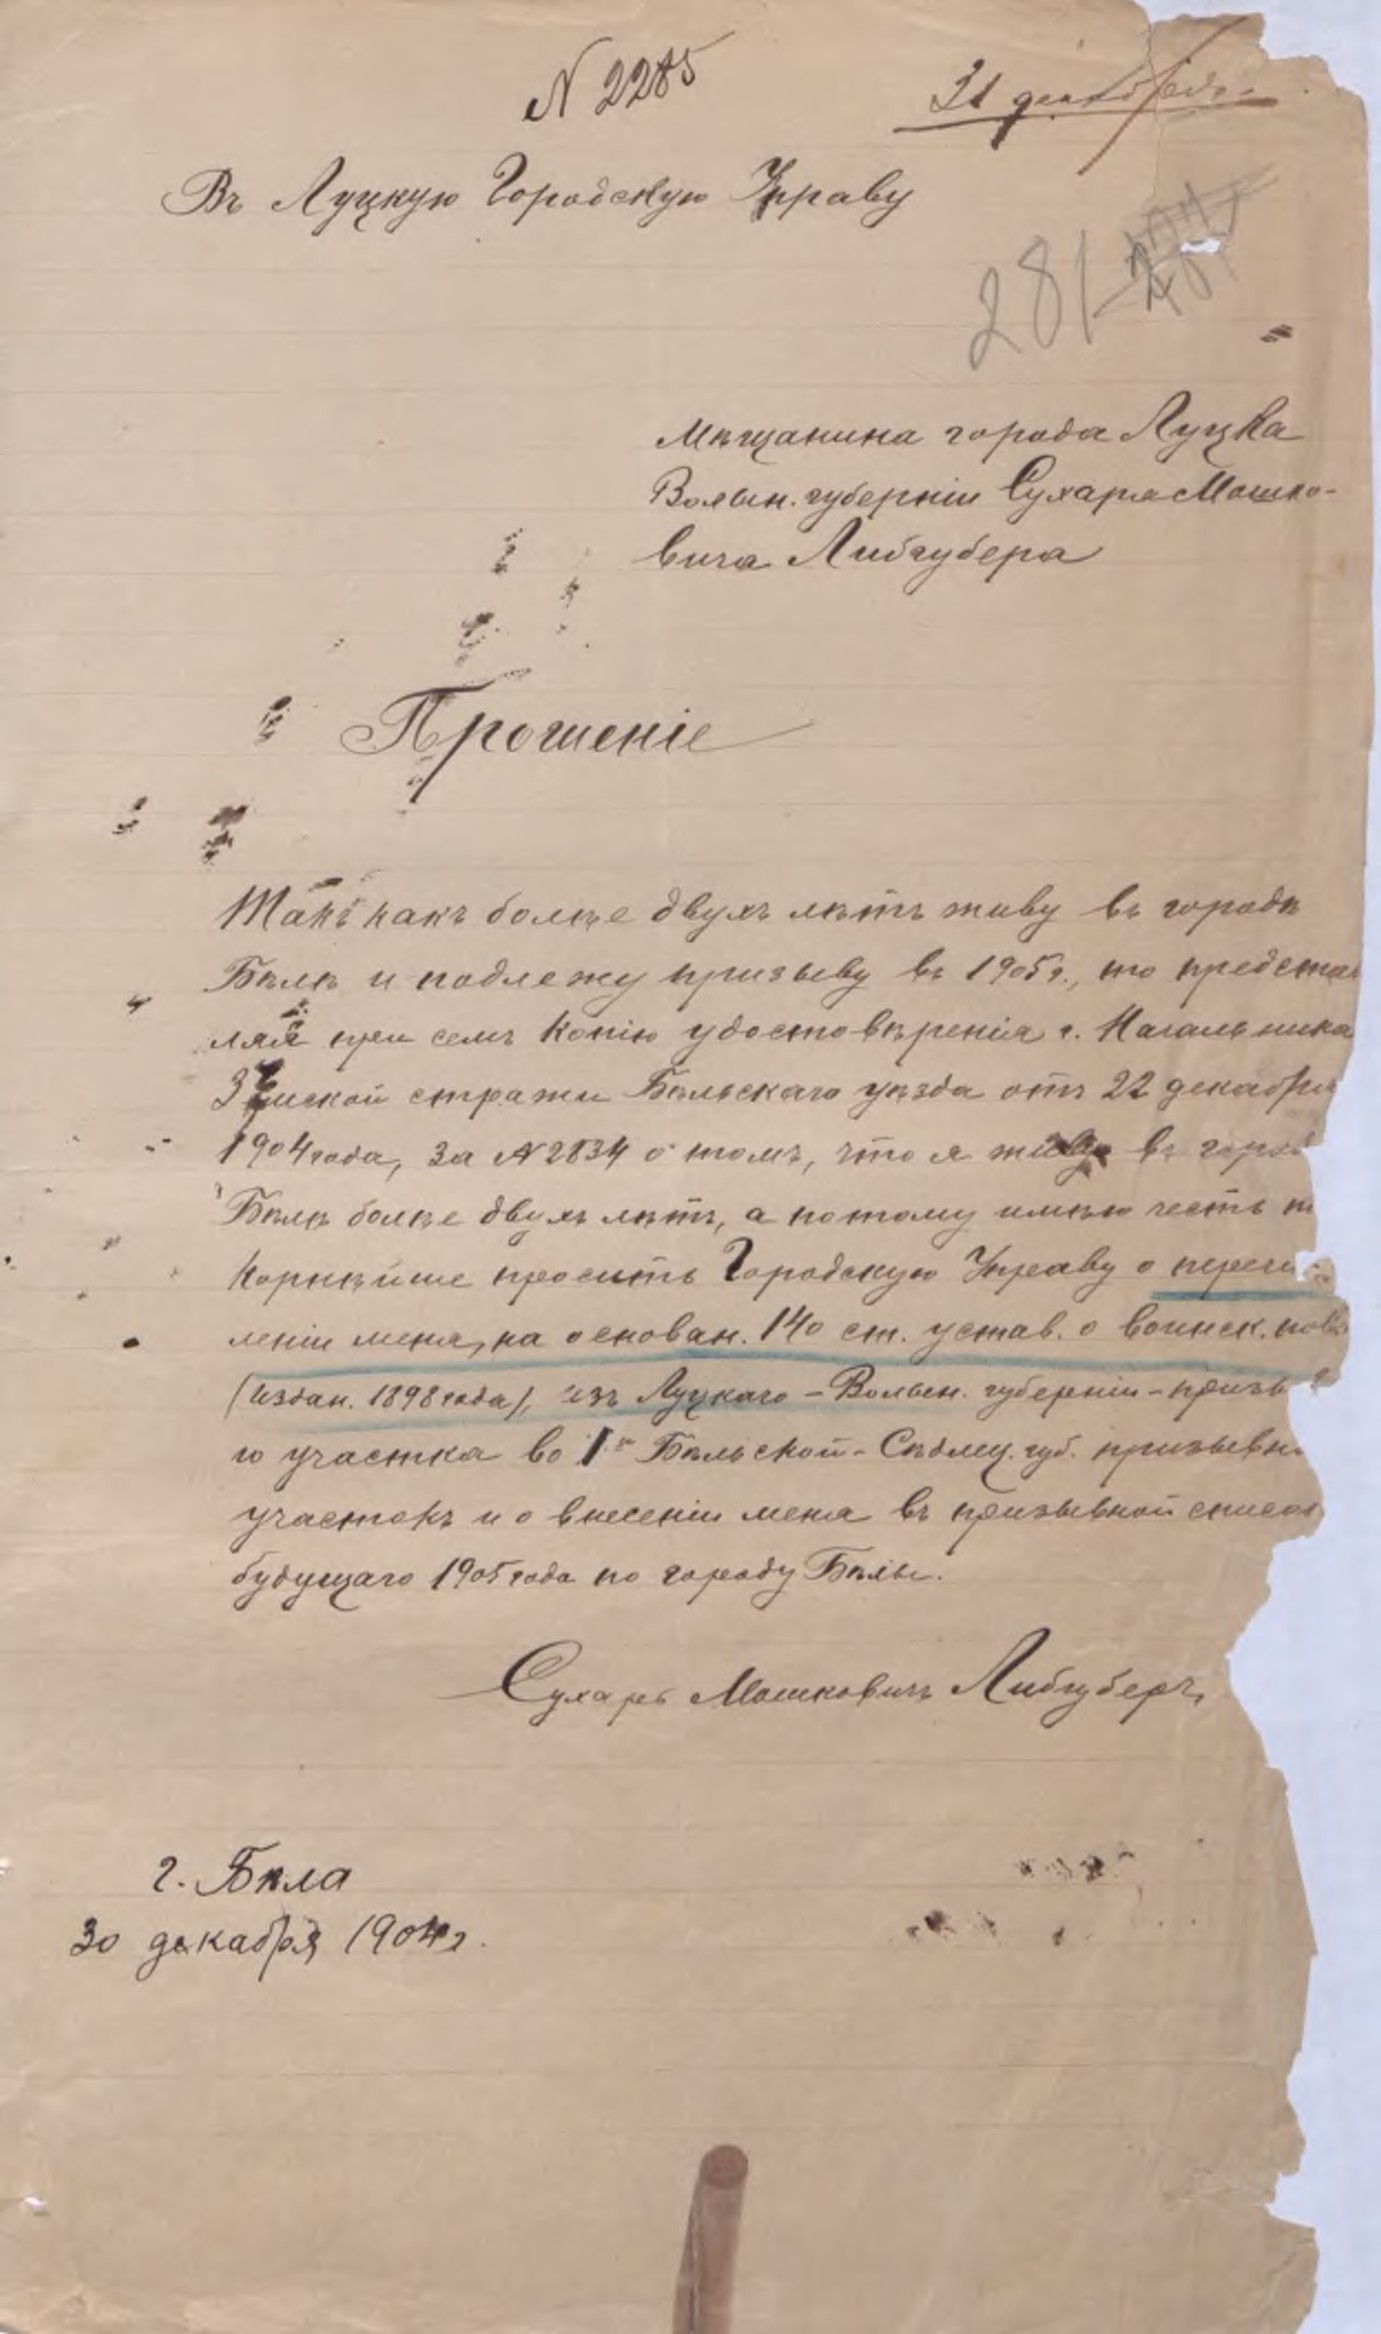 N 2285
31 декабря
Въ Луцкую Городскую Управу
281
Мѣщанина города Луцка
Волын. губерніи Сухаря Мошко-
вича Либгубера
Прошеніе
Такъ какъ болѣе двухъ лѣтъ живу въ городѣ
Бѣлѣ и подлежу призыву въ 1905 г., то представ
ляя при семъ копію удостовѣренія г. Начальника
Земской стражи Бѣльскаго уѣзда отъ 22 декабря
1904 года, за N 2834 о томъ, что я живу въ город
Бѣлѣ болѣе двухъ лѣтъ, а потому имѣю честь по
корнѣйше просить Городскую Управу о перечи
леніи меня, на основан. 140 ст. устав. о воинск. пов
(издан. 1898 года), изъ Луцкаго - Волын. губерніи - призыв
го участка во 1й Бѣльской - Сѣдлец. губ. призывн
участокъ и о внесеніи меня въ призывной список
будущаго 1905 года по городу Бѣлы.
Сухарь Мошковичъ Либгуберъ,
г. Бѣла
30 декабря 1904 г.